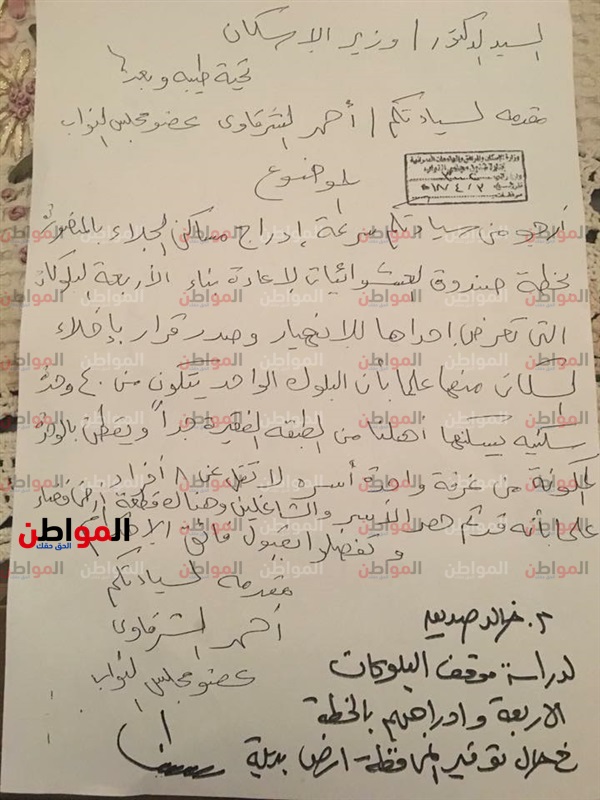 السيد الدكتور / وزير الإسكان
تحية طيبه وبعد،،
مقدمه لسيادتكم / أحمد الشرقاوى عضو مجلس النواب
الموضوع
أرجو من سيادتكم سرعة إدراج مساكن الجلاء بالمنصورة
بخطة صندوق العشوائيات لإعادة بناء الأربعة بلوكات
التى تعرض إحداها للانهيار وصدر قرار بإخلاء
السكان منها علما بأن البلوك الواحد يتكون من ٤٠ وحدة
سكنيه يسكنها أهلنا من الطبقه الفقيرة جداً وتقطن بالوحدة
المكونة من غرفة واحدة أسره لا تقل عن ٨ أفراد
علما بأنه قد تم حصر الأسر والشاغلين وهناك قطعة أرض فضاء
وتفضلوا بقبول فائق الاحترام
المواطن
الحق حقك
مقدمه لسيادتكم
أحمد الشرقاوى
عضو مجلس النواب
م. خالد صديق
لدراسة موقف البلوكات
الاربعة وادراجهم بالخطة
خلال توفير المحافظة - ارض بديلة